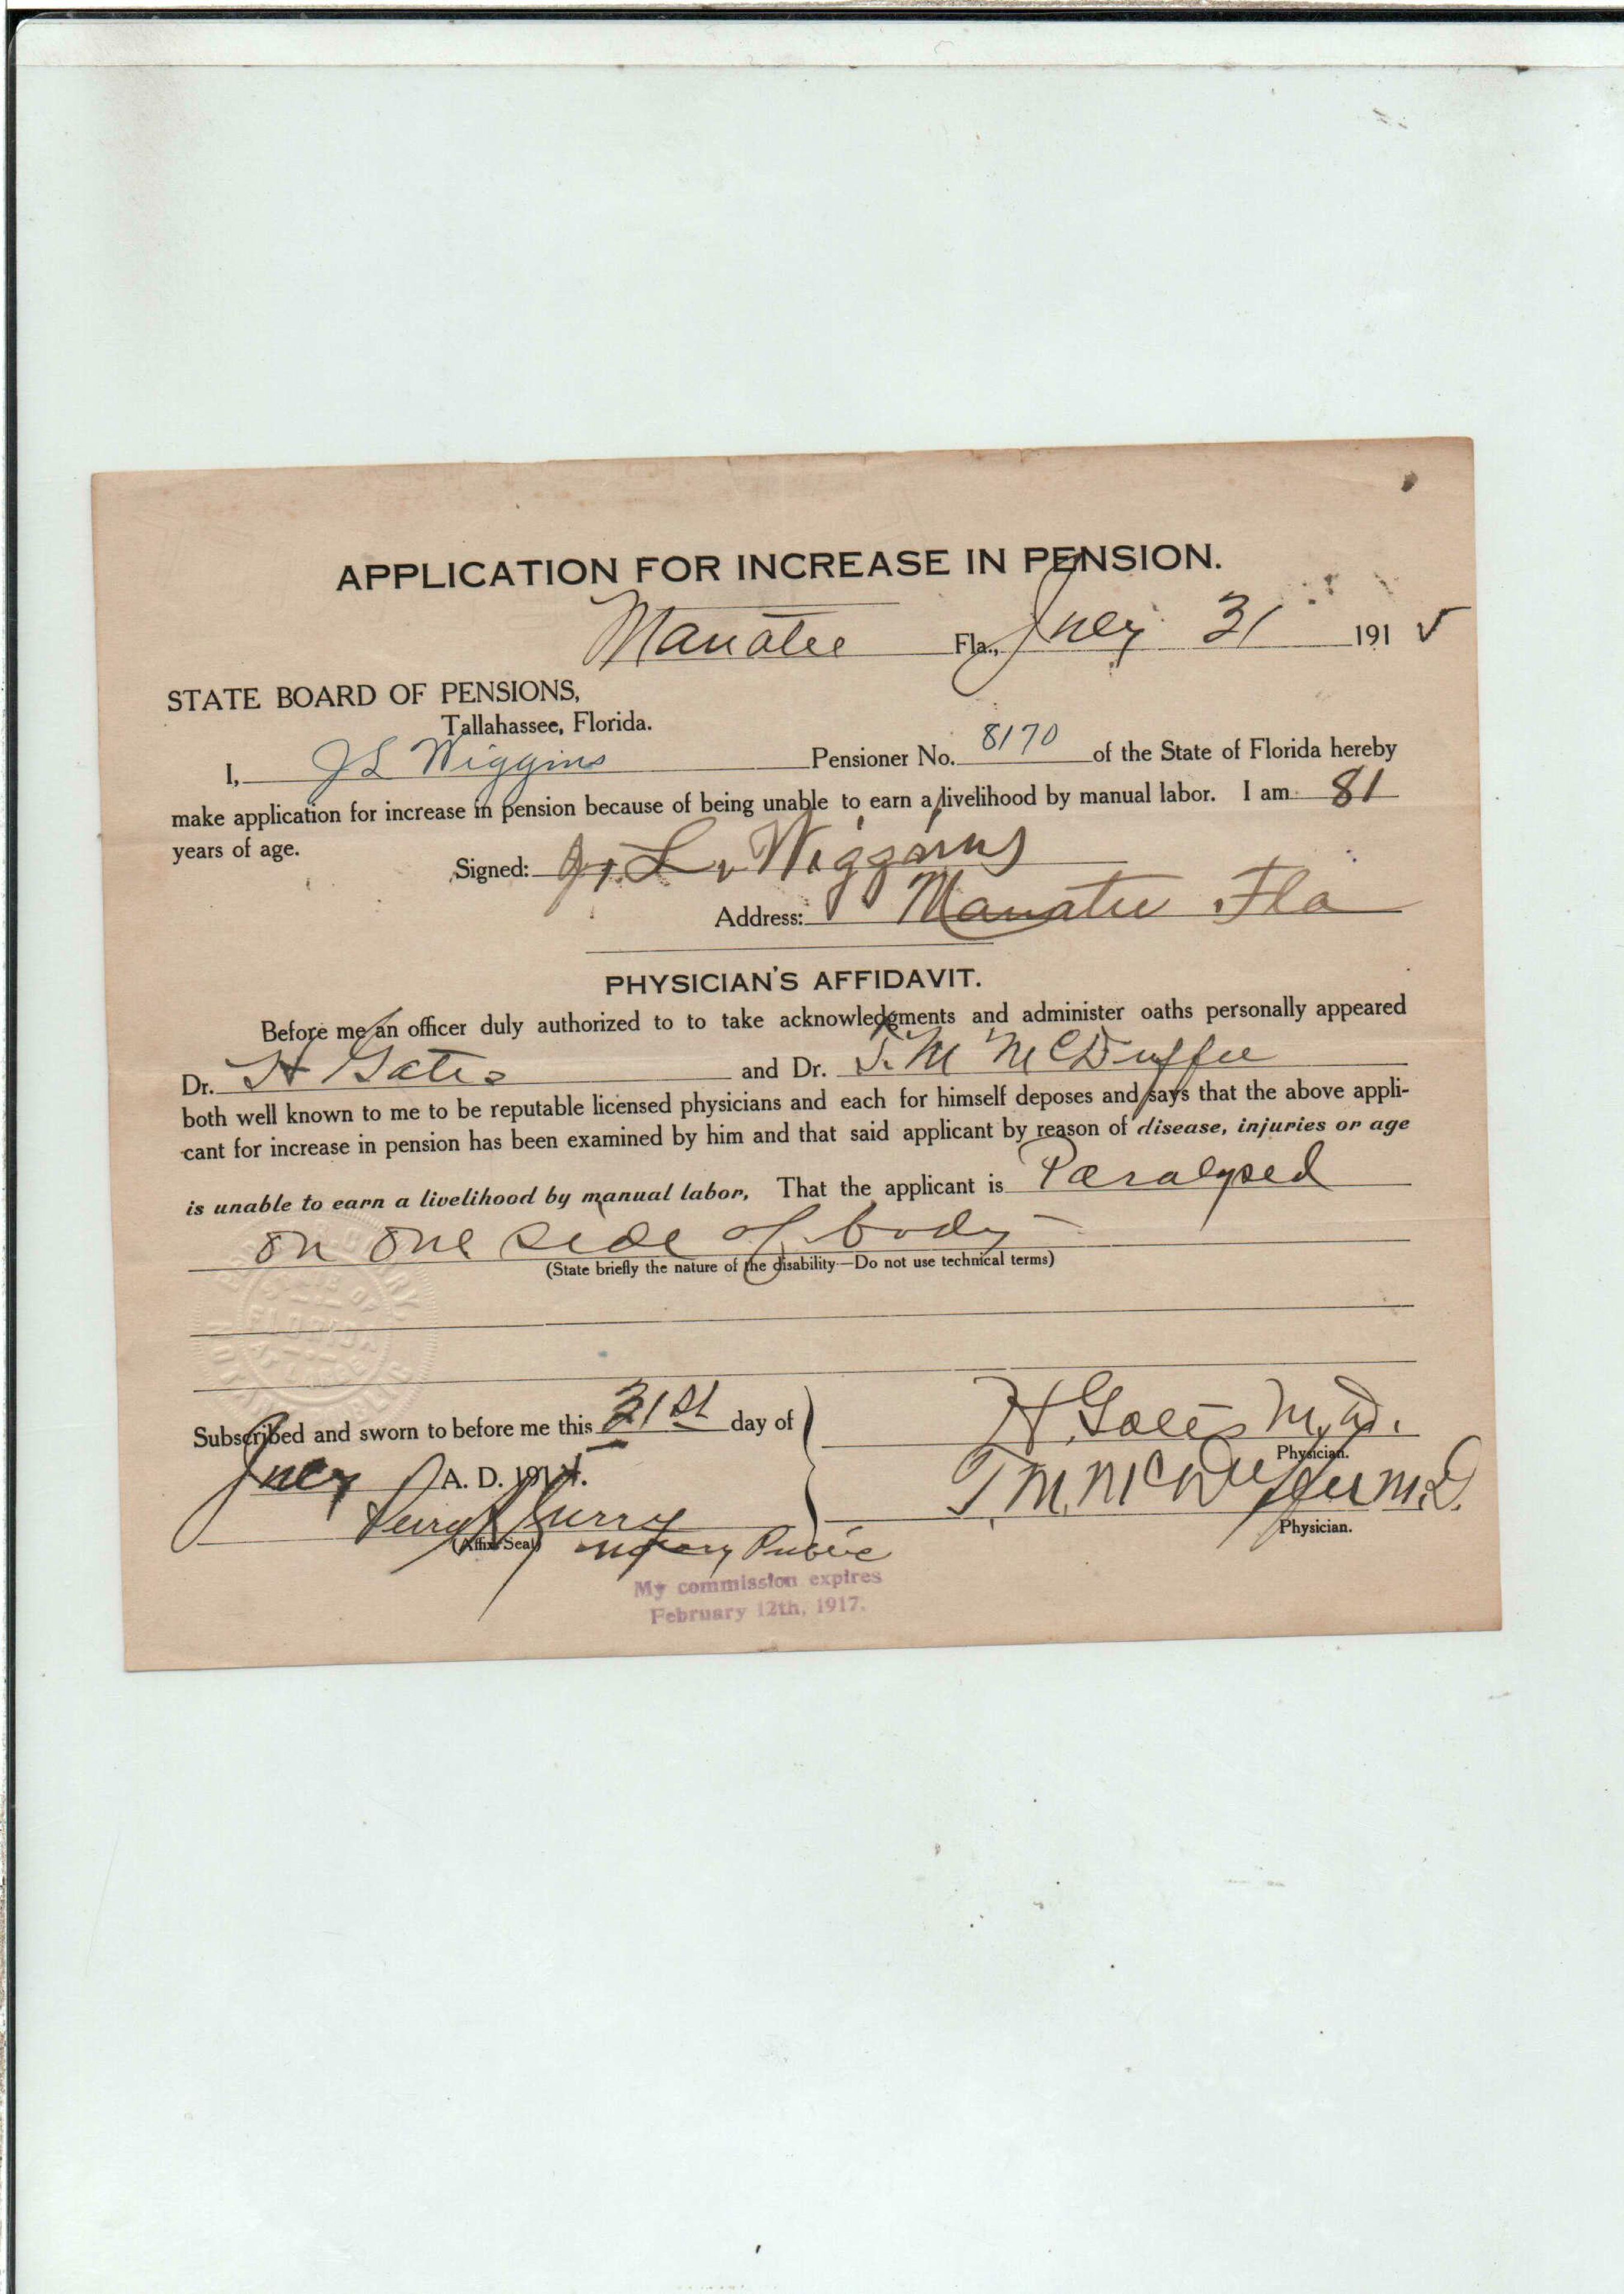 APPLICATION FOR INCREASE IN PENSION.
Manatee Fla., July 31 191 5
STATE BOARD OF PENSIONS,
Tallahassee, Florida.
I, J L Wiggins Pensioner No. 8170 of the State of Florida hereby
make application for increase in pension because of being unable to earn a livelihood by manual labor. I am 81
years of age.
Signed: J. L. Wiggins
Address: Manatee Fla
PHYSICIAN'S AFFIDAVIT.
Before me an officer duly authorized to to take acknowledgments and administer oaths personally appeared
Dr. H Gates and Dr. T. M McDuffee
both well known to me to be reputable licensed physicians and each for himself deposes and says that the above appli-
cant for increase in pension has been examined by him and that said applicant by reason of disease, injuries or age
is unable to earn a livelihood by manual labor, That the applicant is Paralysed
on one side of body
(State briefly the nature of the disability—Do not use technical terms)
Subscribed and sworn to before me this 31st day of
July A. D. 191
H. Gates M.D.
Physician.
T. M. McDuffee M.D.
Physician.
Perry Curry
(Affix Seal) Notary Public
My commission expires
February 12th, 1917.
FLORIDA